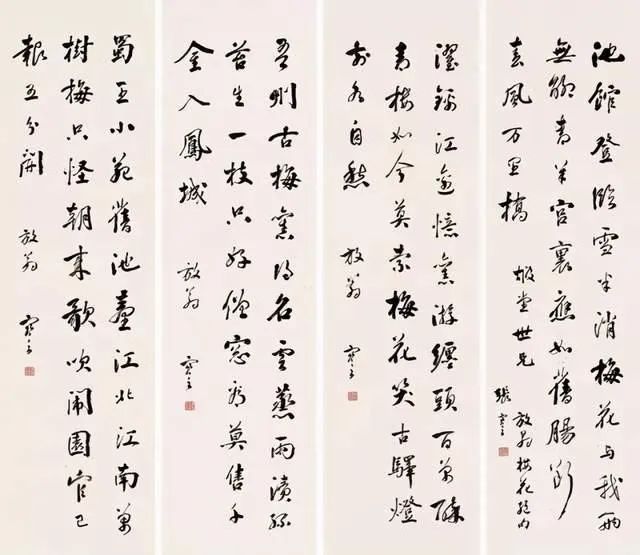 池館登臨雪半消梅花与我兩
無聊青羊宮裏應如舊腸斷
春風万里橋
堂世兄
放翁梅花絕句
張寒
濯錦江邊憶舊游纏頭百萬醉
青樓如今莫索梅花笑古驛燈
前各自愁 放翁 寒
吾州古梅舊得名雲蒸雨漬綠
苔生一枝只好僧窓看莫售千
金入鳳城 放翁 寒
蜀王小苑舊池臺江北江南萬
樹梅只怪朝來歌吹鬧園官已
報五分開 放翁 寒